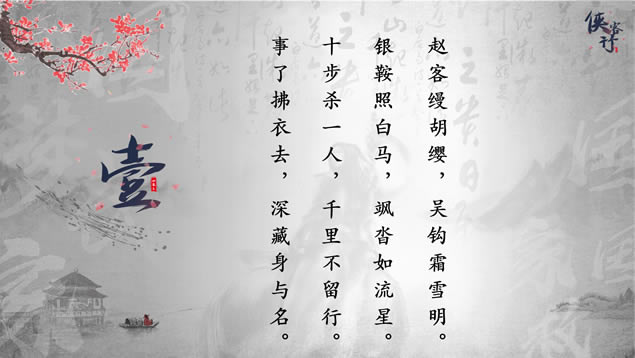 赵客缦胡缨，吴钩霜雪明。
银鞍照白马，飒沓如流星。
十步杀一人，千里不留行。
事了拂衣去，深藏身与名。
壹
侠客行